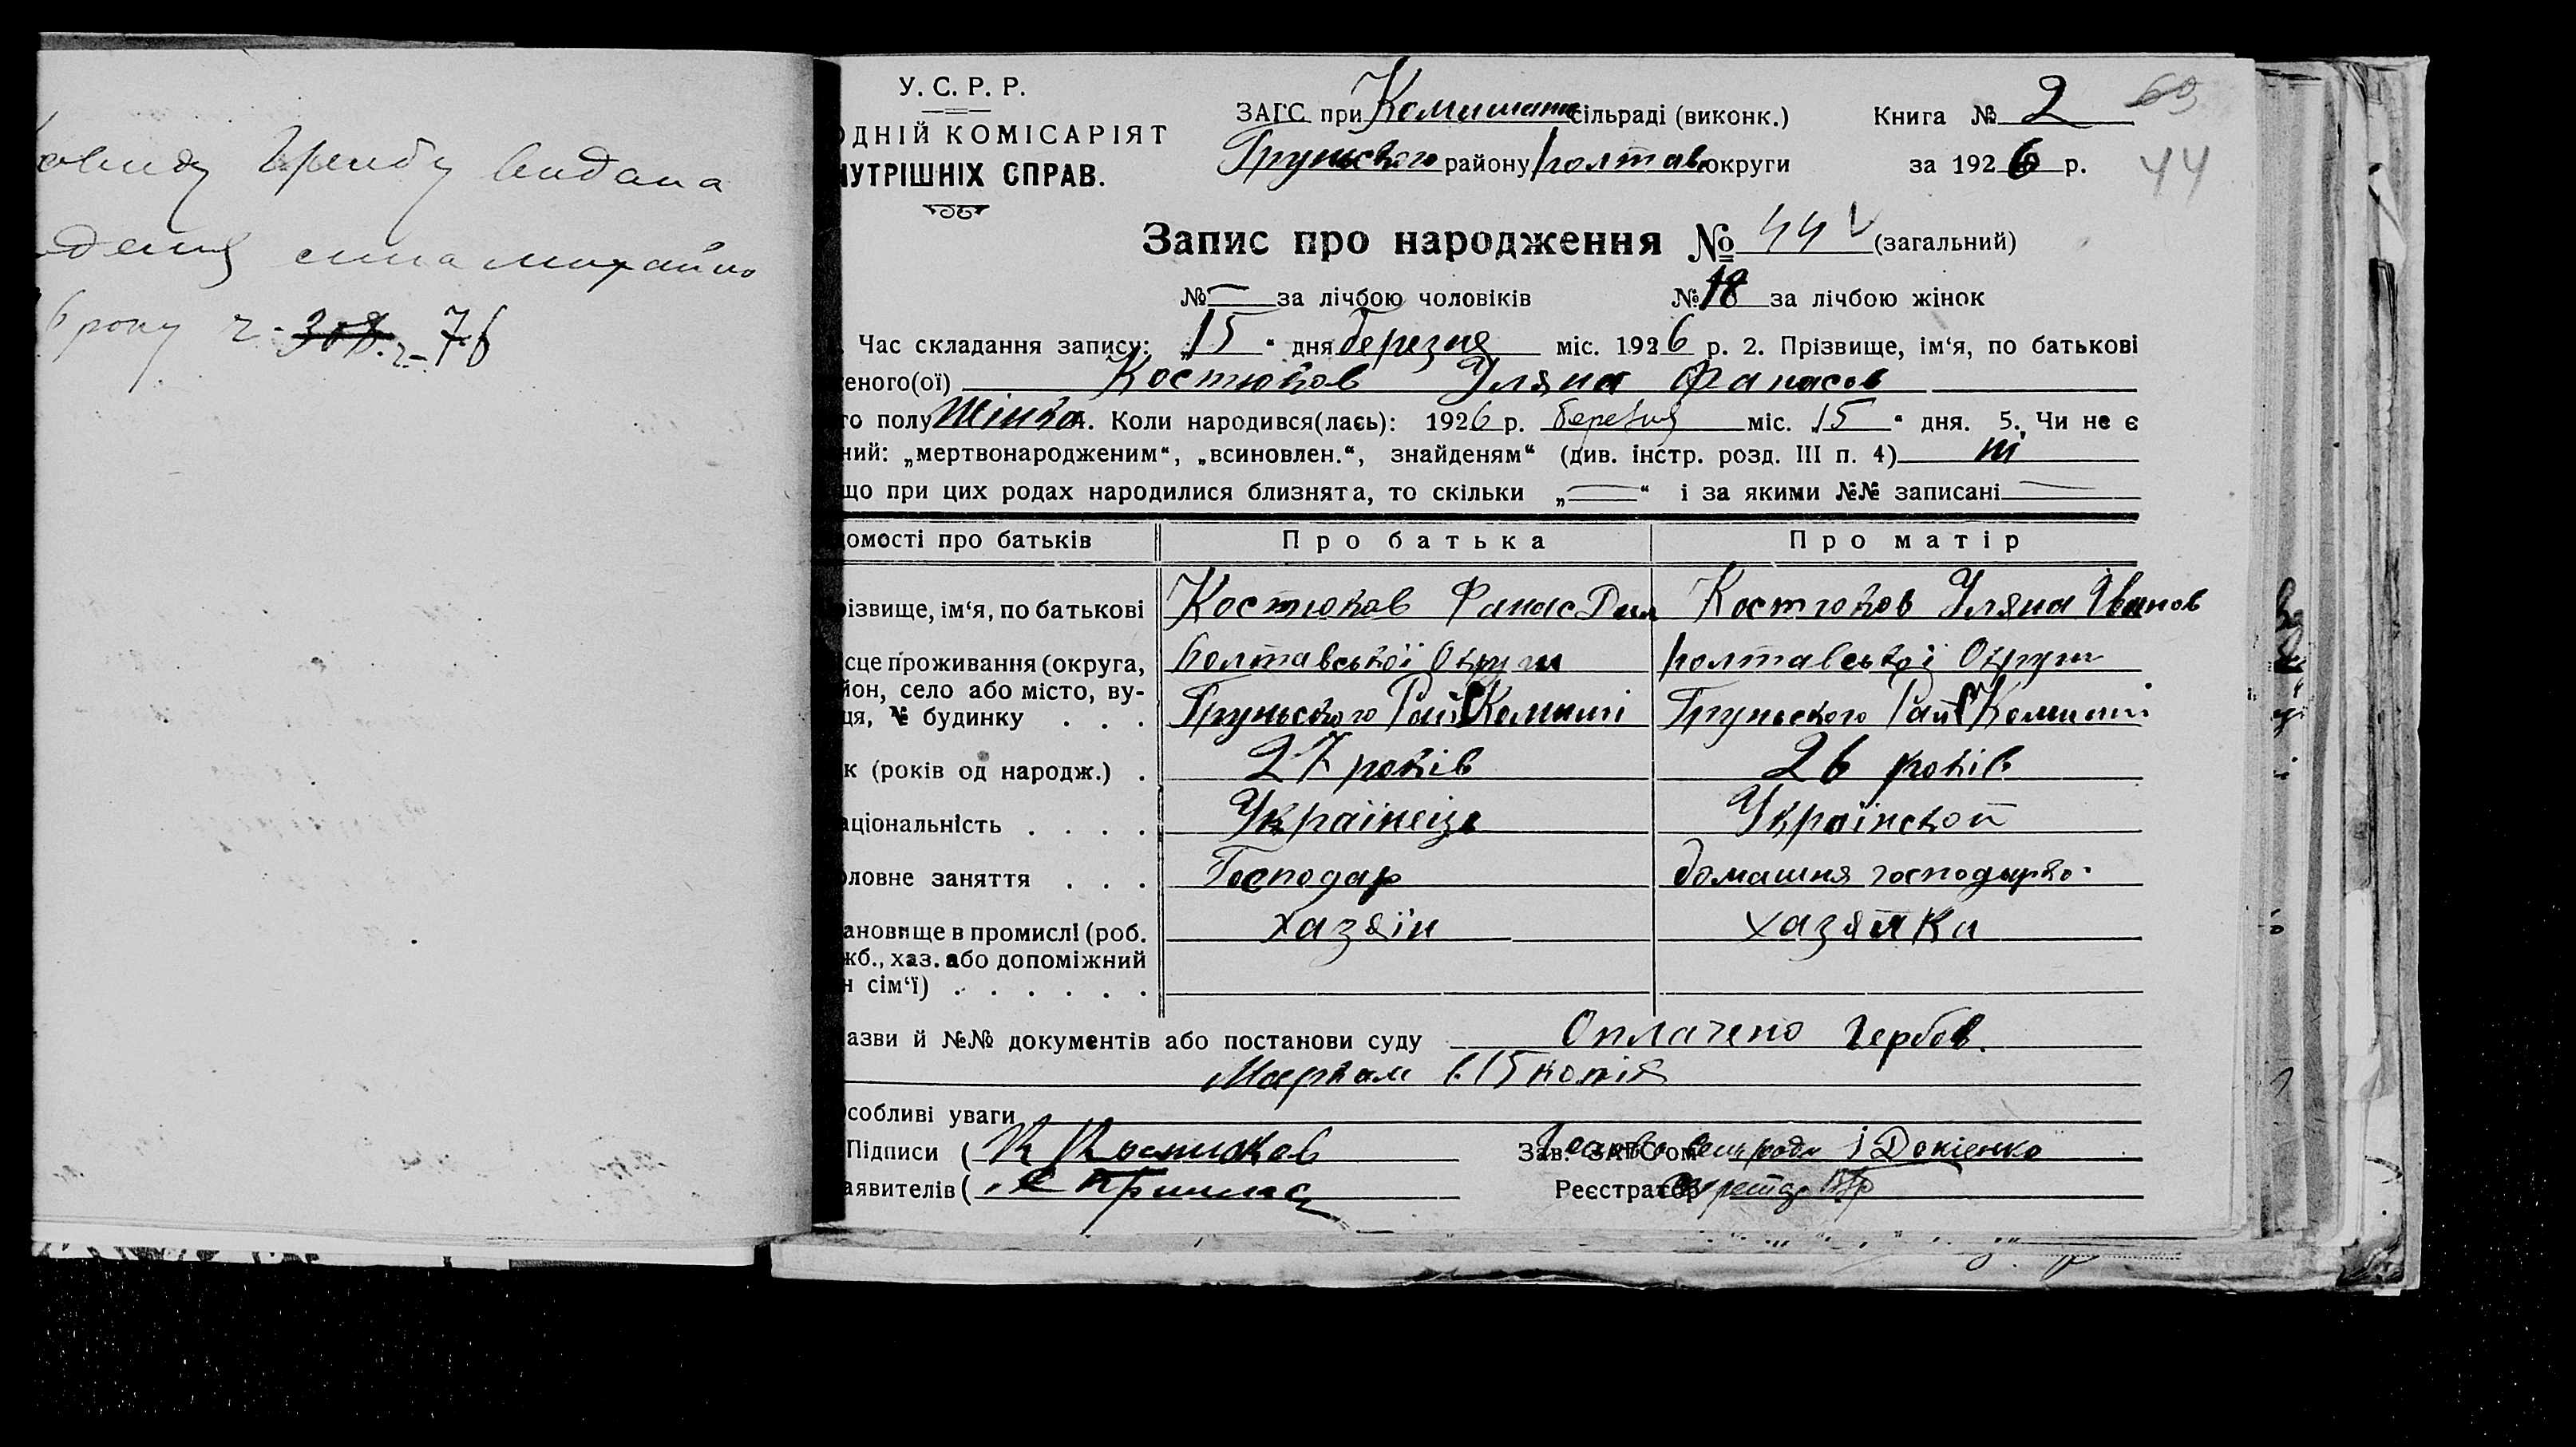 видана
сина
року ч. 308. ч-76
У. С. Р. Р.
ОДНІЙ КОМІСАРІЯТ
НУТРІШНІХ СПРАВ.
ЗАГС при Комишан сільраді (виконк.)
Грунського району Полтав округи
Книга № 2 63
за 1926 р. 44
Запис про народження № 44 (загальний)
№ — за лічбою чоловіків № 18 за лічбою жінок
Час складання запису: „15“ дня березня міс. 1926 р. 2. Прізвище, ім‘я, по батькові
еного(ої) Костюков Уляна Фанасов
го полу Жінка 4. Коли народився(лась): 1926 р. березня міс. 15“ дня. 5. Чи не є
ний: „мертвонародженим“, „всиновлен.“, знайденям“ (див. інстр. розд. III п. 4) ні
що при цих родах народилися близнята, то скільки „—“ і за якими №№ записані —
омості про батьків Про батька Про матір
різвище, ім‘я, по батькові Костюков Фанас Костюков Уляна Іванов
сце проживання (округа, Полтавської Округи Полтавської Округи
йон, село або місто, ву- Грунського Рай С Комиші Грунського Рай С Комиші
ця, № будинку . . .
к (років од народж.) . 27 років 26 років
аціональність . . . . Українець Українской
оловне заняття . . . Господар домашня господарка
ановище в промислі (роб. хазяїн хазяйка
жб., хаз. або допоміжний
н сім‘ї) . . . . . .
азви й №№ документів або постанови суду Оплачено гербов.
Маркам 15 копія
собливі уваги
Підписи ( К Костюков Зав. ЗАГС‘ом Голова сельради І Докієнко
аявителів ( Реєстратор